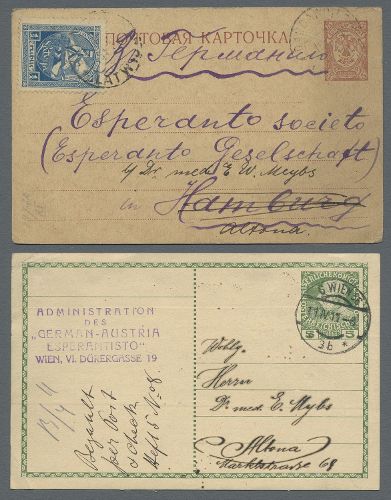 ПОЧТОВАЯ КАРТОЧКА.
Въ Германию
Esperanto societo
(Esperanto Geselschaft)
p/ Dr. med. E. W. Meybs
en Hamburg
Altona.
ADMINISTRATION
DES
„GERMAN-AUSTRIA
ESPERANTISTO"
WIEN, VI. DÜRERGASSE 19
13/4
Bezahlt
per Post
scheck
Heft 5 No 8.
WIEN
3b
5
Wohlg.
Herrn
Dr. med. E. Mybs
Altona
Marktstrasse 68